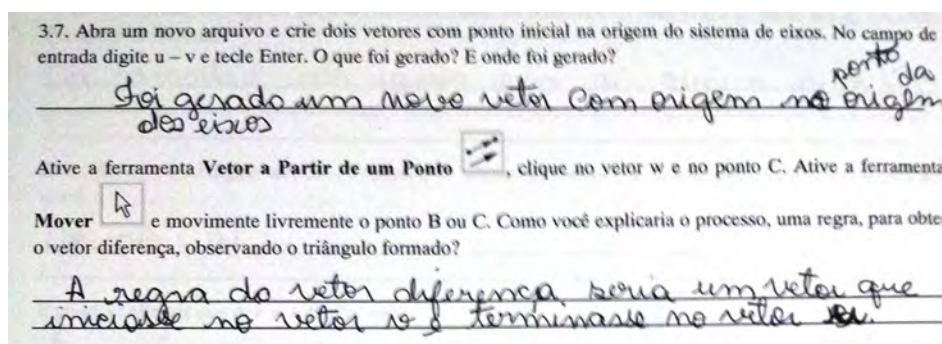 3.7. Abra um novo arquivo e crie dois vetores com ponto inicial na origem do sistema de eixos. No campo de
entrada digite u – v e tecle Enter. O que foi gerado? E onde foi gerado?
Foi gerado um novo vetor com origem no ponto da origem
dos eixos
Ative a ferramenta Vetor a Partir de um Ponto , clique no vetor w e no ponto C. Ative a ferramenta
Mover e movimente livremente o ponto B ou C. Como você explicaria o processo, uma regra, para obte
o vetor diferença, observando o triângulo formado?
A regra do vetor diferença seria um vetor que
iniciasse no vetor v e terminasse no vetor u.